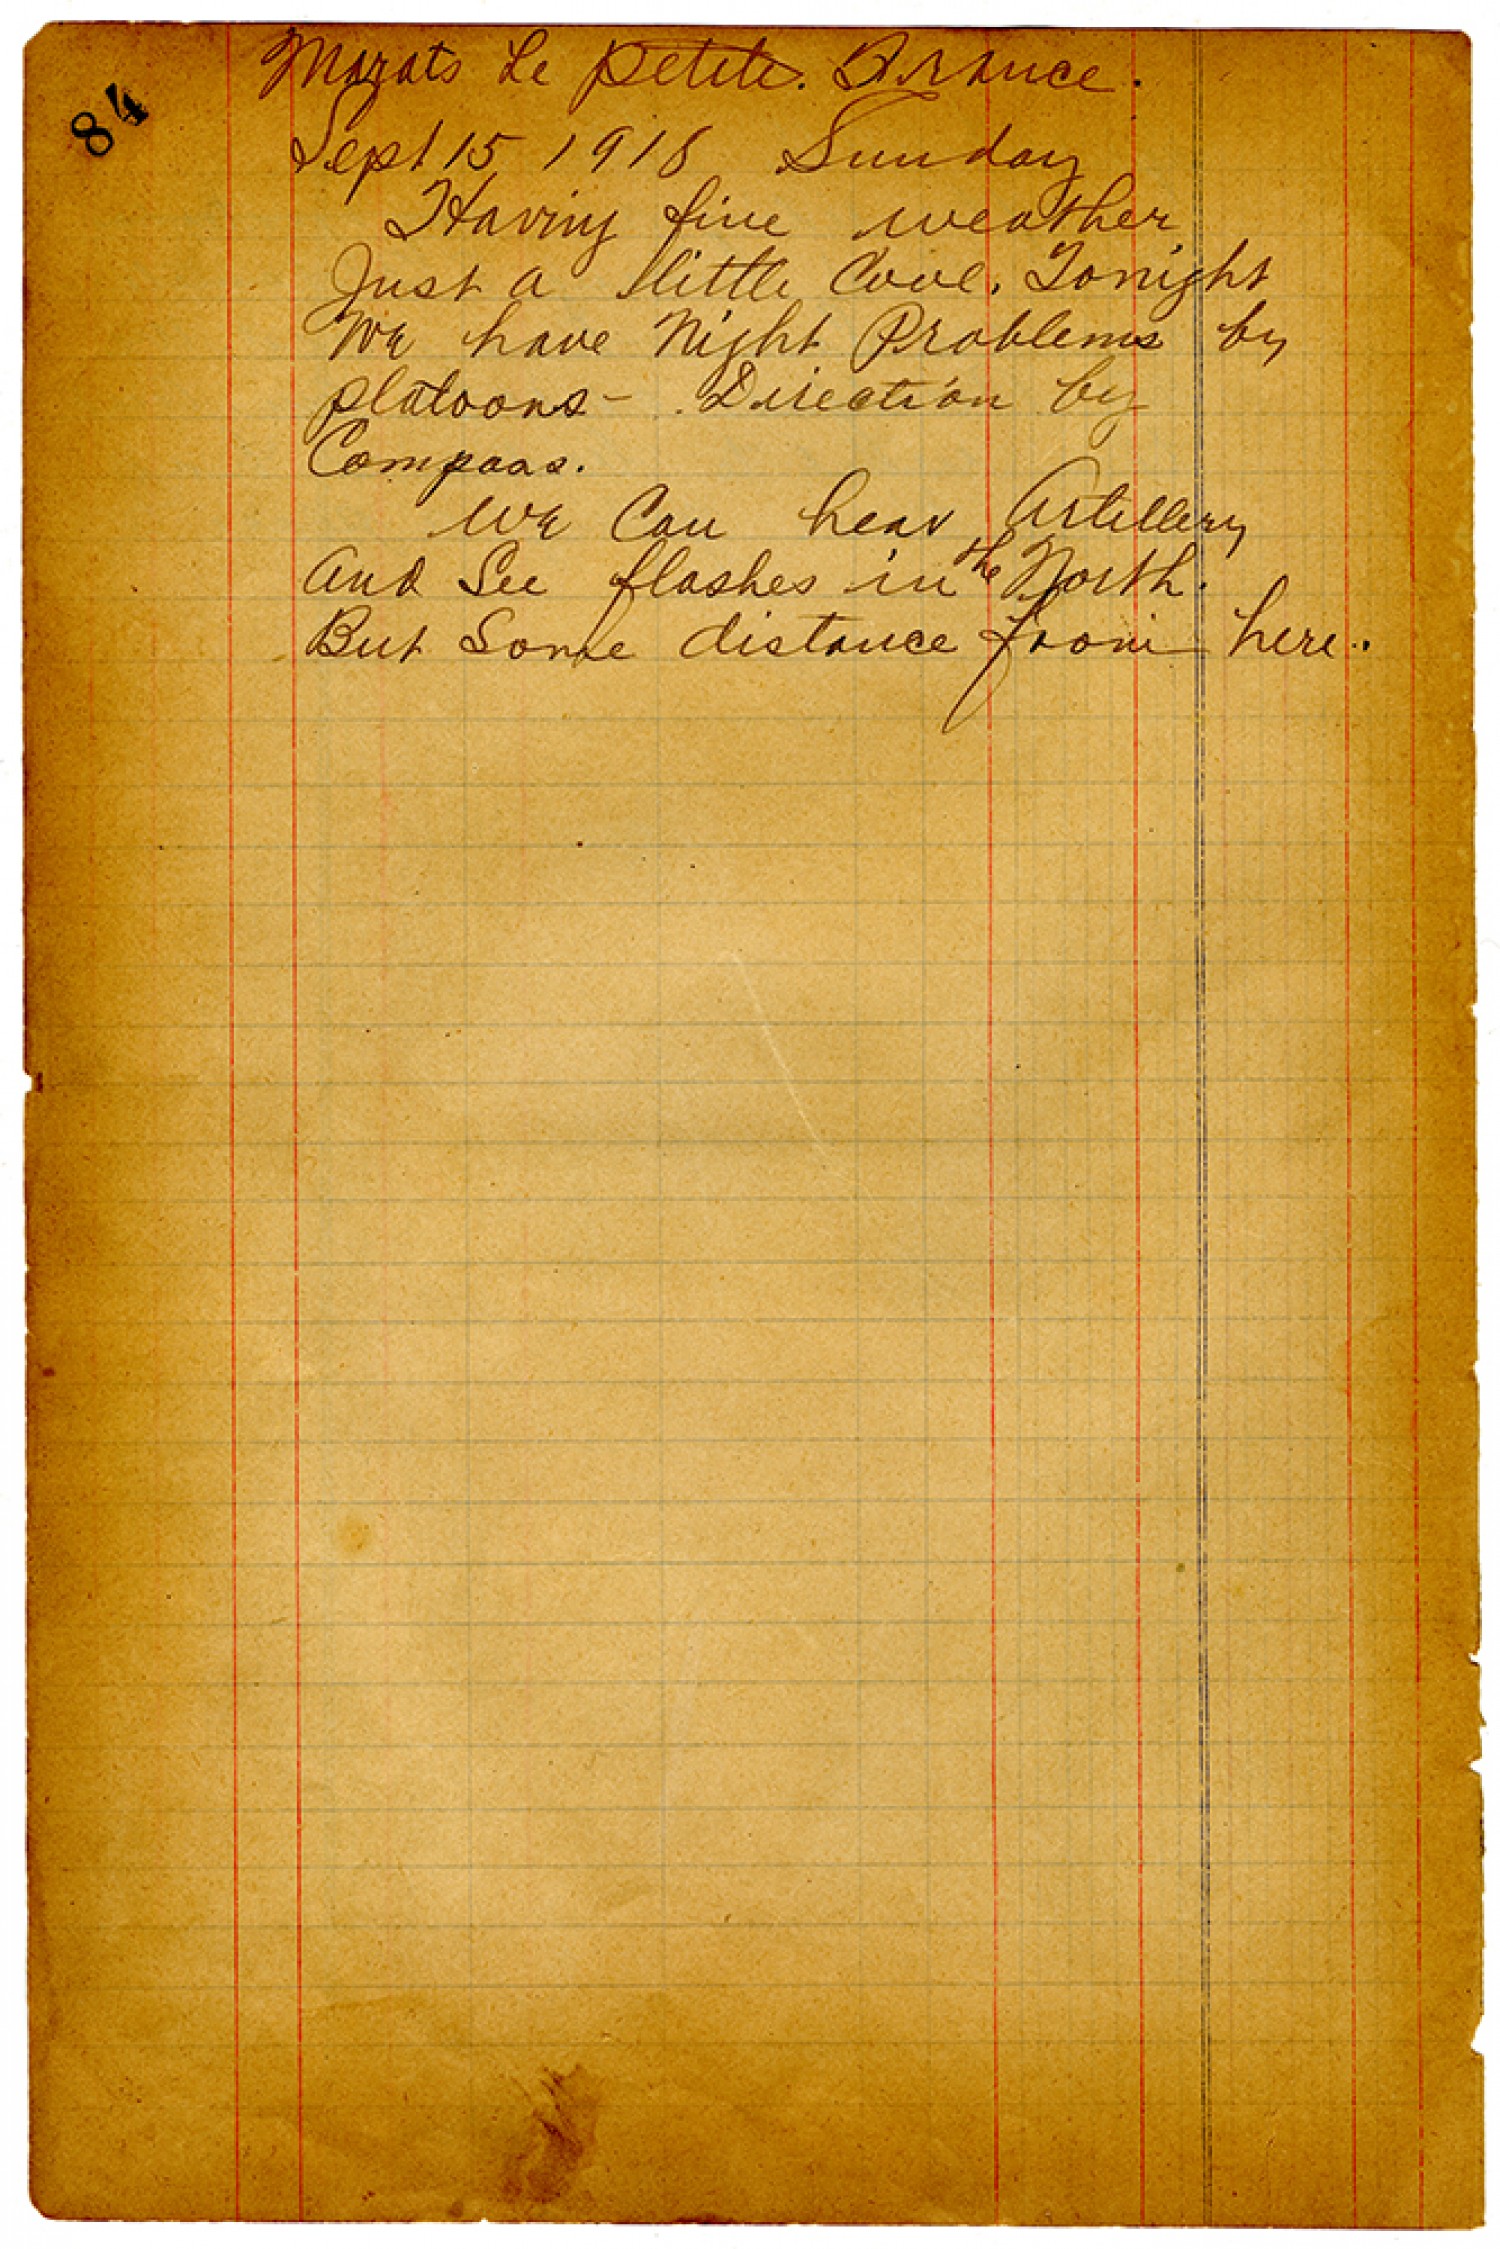 84
Mazats Le Petite. France.
Sept 15 1918 Sunday
Having fine weather
Just a little Cool. Tonight
We have Night Problems by
platoons - Direction by
Compass.
We Can hear Artillery
And See flashes in the North.
But Some distance from here.